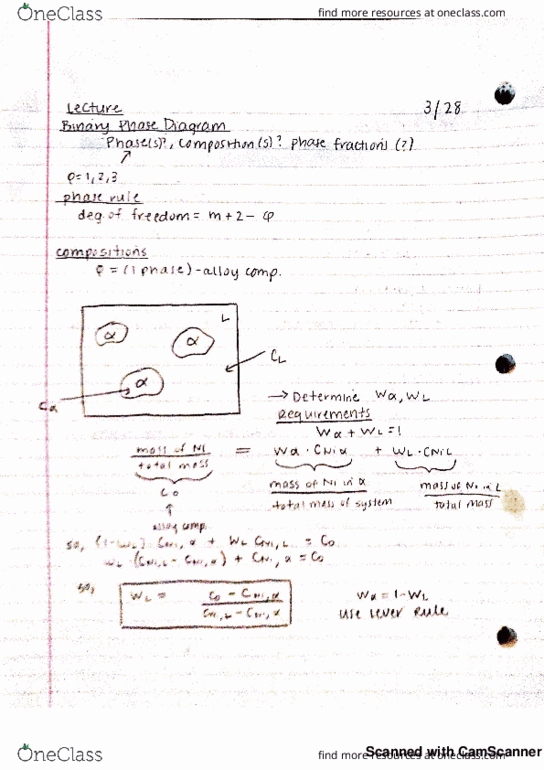 OneClass
find more resources at oneclass.com
Lecture 3/28
Binary Phase Diagram
Phase(s)?, Composition(s)? phase fractions (?)
φ=1,2,3
phase rule
deg. of freedom = m + 2 - φ
compositions
φ = (1 phase) - alloy comp.
L
α
α
α
CL
Cα
→ Determine Wα, WL
Requirements
Wα + WL = 1
mass of Ni / total mass = Wα · CNi,α + WL · CNi,L
C0
mass of Ni in α / total mass of system
mass of Ni in L / total mass
alloy comp.
so, (1-WL) CNi,α + WL CNi,L = C0
WL (CNi,L - CNi,α) + CNi,α = C0
so,
WL = C0 - CNi,α / CNi,L - CNi,α
Wα = 1 - WL
Use Lever Rule
Scanned with CamScanner
OneClass
find more resources at oneclass.com